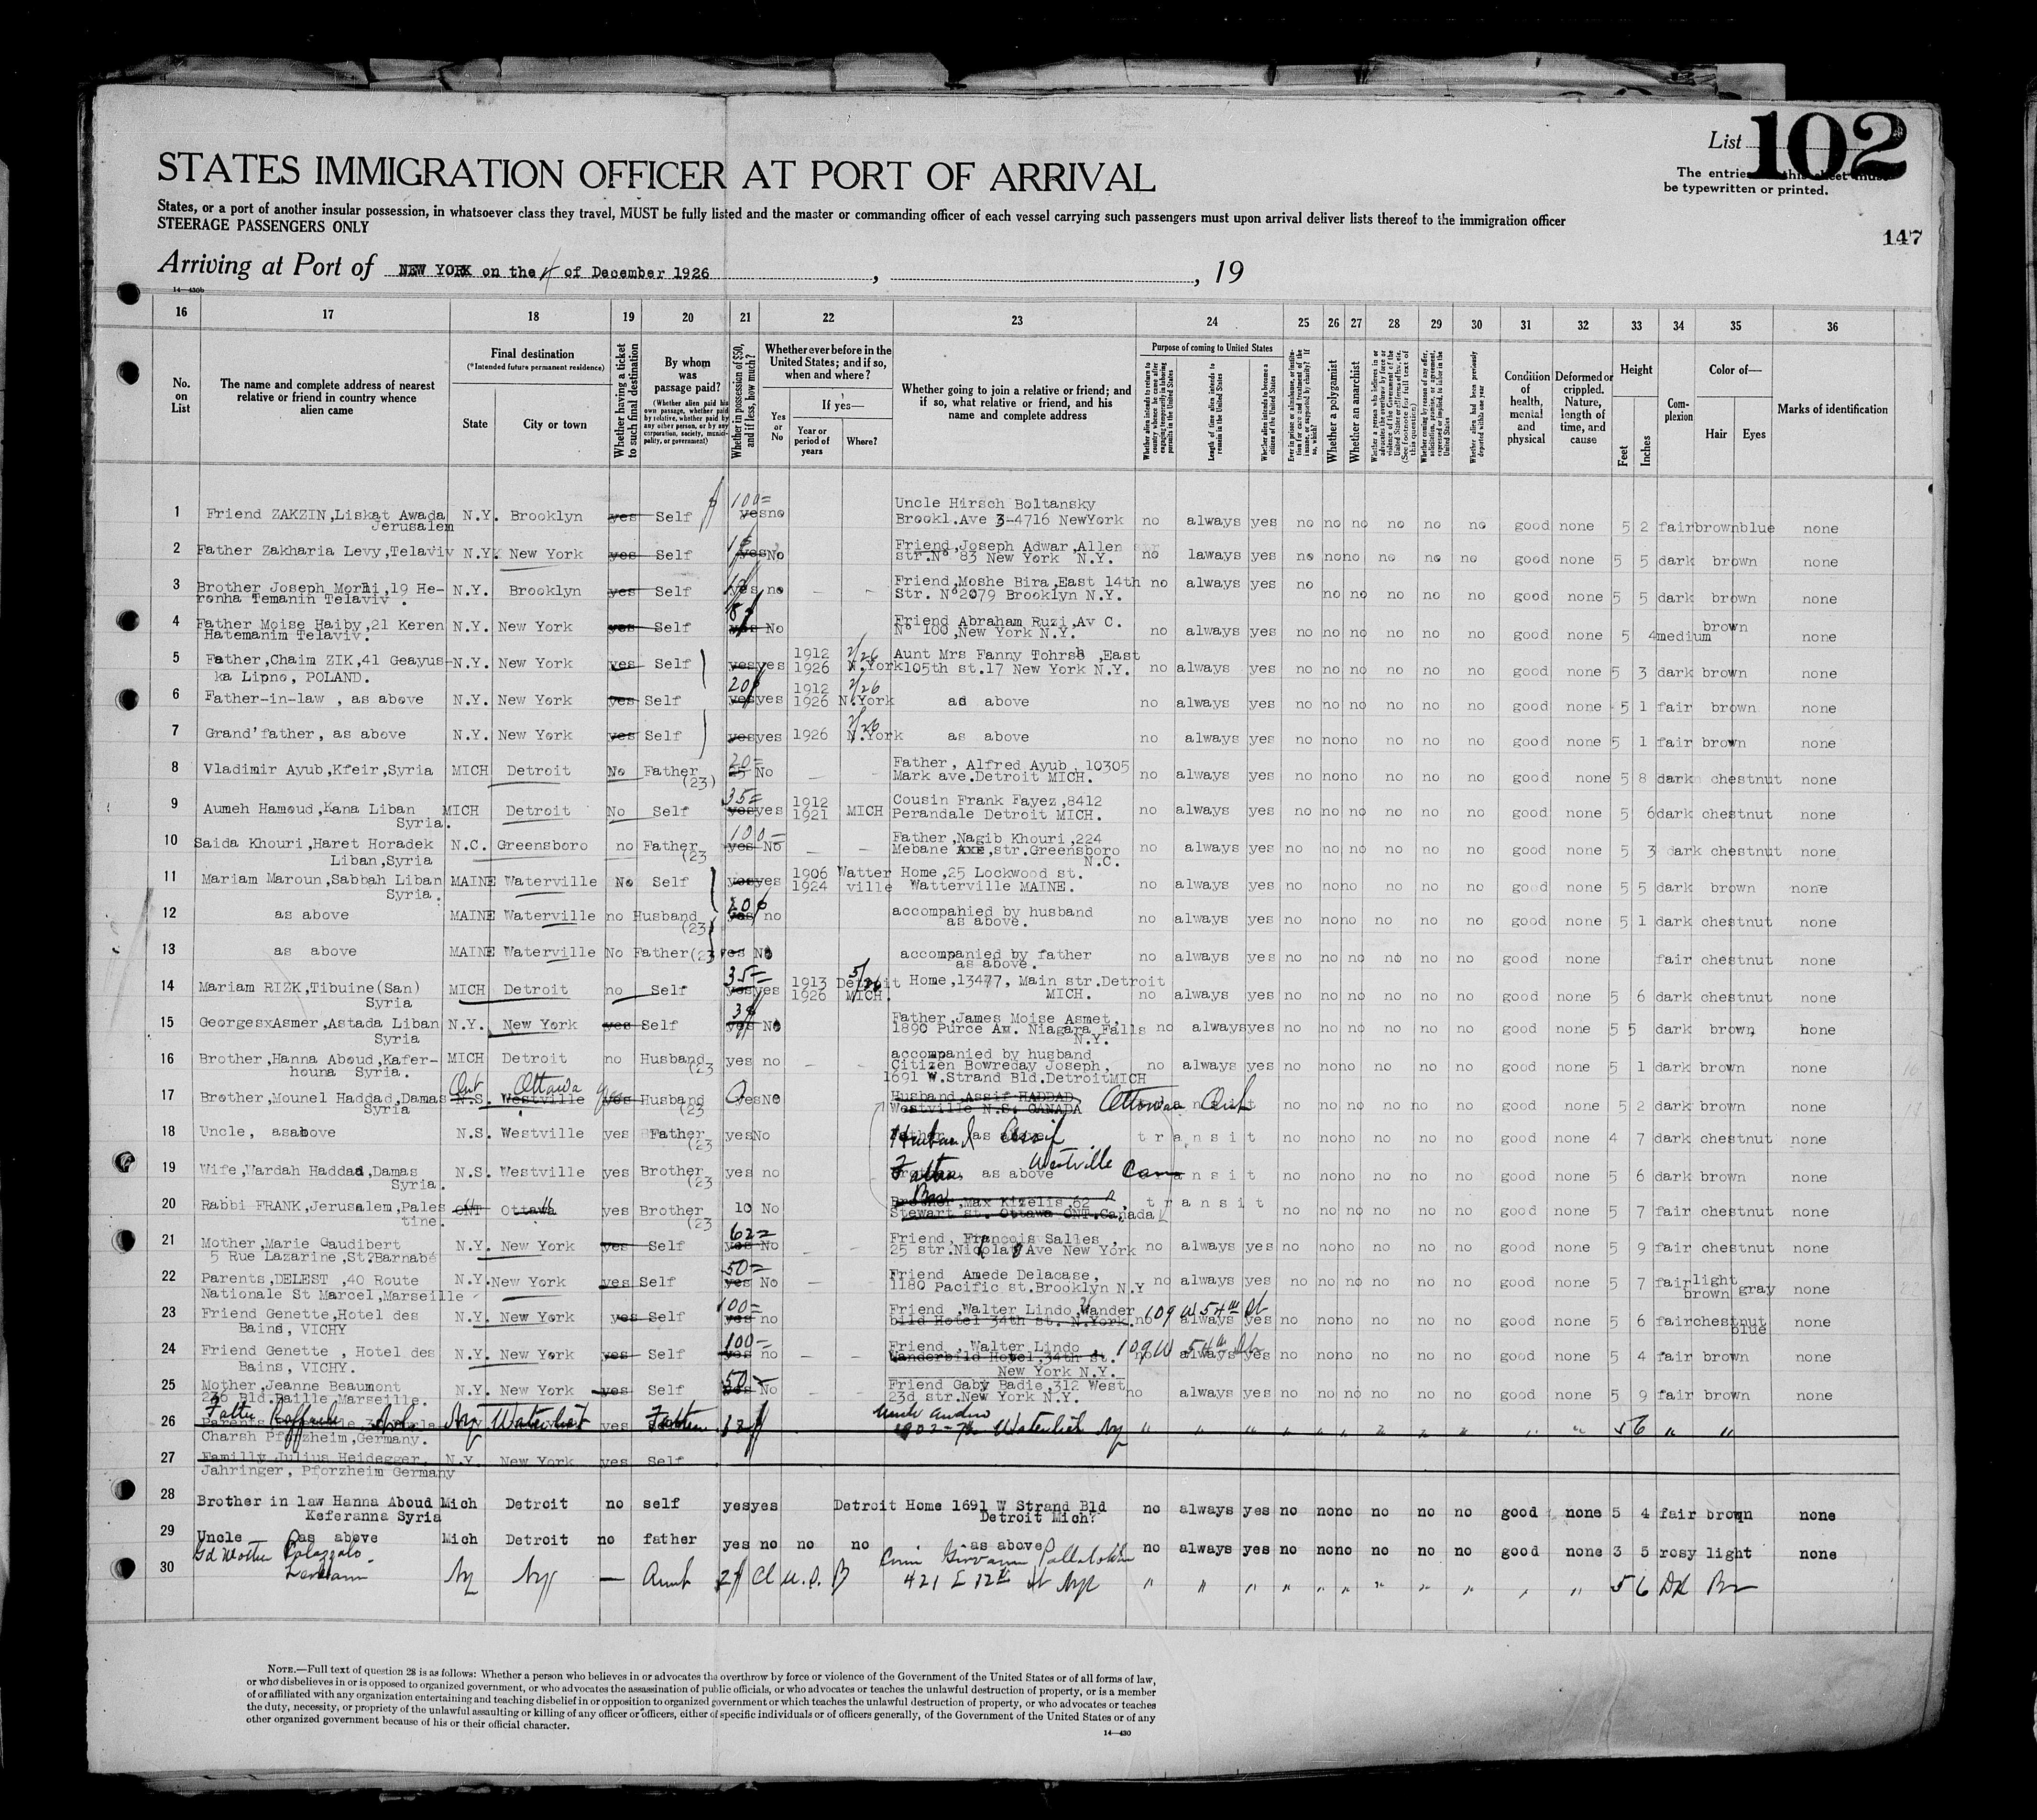 List 102
The entries this sheet must
be typewritten or printed.
STATES IMMIGRATION OFFICER AT PORT OF ARRIVAL
States, or a port of another insular possession, in whatsoever class they travel, MUST be fully listed and the master or commanding officer of each vessel carrying such passengers must upon arrival deliver lists thereof to the immigration officer
STEERAGE PASSENGERS ONLY
147
Arriving at Port of NEW YORK on the of December 1926 , , 19
14—430b
16 17 18 19 20 21 22 23 24 25 26 27 28 29 30 31 32 33 34 35 36
No. on List
The name and complete address of nearest relative or friend in country whence alien came
Final destination
(*Intended future permanent residence)
State
City or town
Whether having a ticket to such final destination
By whom was passage paid?
(Whether alien paid his own passage, whether paid by relative, whether paid by any other person, or by any corporation, society, municipality, or government)
Whether in possession of $50, and if less, how much?
Whether ever before in the United States; and if so, when and where?
Yes or No
If yes—
Year or period of years
Where?
Whether going to join a relative or friend; and if so, what relative or friend, and his name and complete address
Purpose of coming to United States
Length of time alien intends to remain in the United States
Whether alien intends to become a citizen of the United States
Whether a polygamist
Whether an anarchist
Whether alien had been previously deported within one year
Condition of health, mental and physical
Deformed or crippled. Nature, length of time, and cause
Height
Feet
Inches
Complexion
Color of—
Hair
Eyes
Marks of identification
1 Friend ZAKZIN,Liskat Awada Jerusalem N.Y. Brooklyn yes Self 100= yes no Uncle Hirsch Boltansky Brookl.Ave 3-4716 NewYork no always yes no no no no no no good none 5 2 fair brown blue none
2 Father Zakharia Levy,Telaviv N.Y. New York yes Self yes No Friend,Joseph Adwar,Allen str.N° 83 New York N.Y. no laways yes no no no no no no good none 5 5 dark brown none
3 Brother Joseph Morhi,19 Heronha Temanin Telaviv. N.Y. Brooklyn yes Self yes no Friend,Moshe Bira,East 14th Str. N°2079 Brooklyn N.Y. no always yes no no no no no no good none 5 5 dark brown none
4 Father Moise Haiby,21 Keren Hatemanim Telaviv. N.Y. New York yes Self yes No Friend Abraham Ruzi,Av C. N° 100,New York N.Y. no always yes no no no no no no good none 5 4 medium brown none
5 Father,Chaim ZIK,41 Geayuska Lipno, POLAND. N.Y. New York yes Self yes yes 1912 1926 2/26 N.York Aunt Mrs Fanny Tohrsh ,East 105th st.17 New York N.Y. no always yes no no no no no no good none 5 3 dark brown none
6 Father-in-law , as above N.Y. New York yes Self 20 yes yes 1912 1926 2/26 N.York as above no always yes no no no no no no good none 5 1 fair brown none
7 Grand'father, as above N.Y. New York yes Self yes yes 1926 2/26 N.York as above no always yes no no no no no no good none 5 1 fair brown none
8 Vladimir Ayub,Kfeir,Syria MICH Detroit No Father (23) 20= 25 No Father, Alfred Ayub, 10305 Mark ave.Detroit MICH. no always yes no no no no no no good none 5 8 dark chestnut none
9 Aumeh Hamoud,Kana Liban Syria. MICH Detroit No Self 35= yes yes 1912 1921 MICH Cousin Frank Fayez,8412 Perandale Detroit MICH. no always yes no no no no no no good none 5 6 dark chestnut none
10 Saida Khouri,Haret Horadek Liban,Syria N.C. Greensboro no Father (23 100= yes No Father,Nagib Khouri,224 Mebane str.Greensboro N.C. no always yes no no no no no no good none 5 3 dark chestnut none
11 Mariam Maroun,Sabbah Liban Syria. MAINE Waterville No Self yes yes 1906 1924 Watter ville Home,25 Lockwood st. Watterville MAINE. no always yes no no no no no no good none 5 5 dark brown none
12 as above MAINE Waterville no Husband (23) 200 yes no accompahied by husband as above. no always yes no no no no no no good none 5 1 dark chestnut none
13 as above MAINE Waterville No Father(23 yes No accompanied by father as above. no always yes no no no no no no good none fair chestnut none
14 Mariam RIZK,Tibuine(San) Syria MICH Detroit no Self 35= yes yes 1913 1926 5/26 Detroit MICH. Home,13477, Main str.Detroit MICH. no always yes no no no no no no good none 5 6 dark chestnut none
15 GeorgesxAsmer,Astada Liban Syria N.Y. New York yes Self yes No Father,James Moise Asmet, 1890 Purce Av. Niagara Falls N.Y. no always yes no no no no no no good none 5 5 dark brown none
16 Brother,Hanna Aboud,Kaferhouna Syria. MICH Detroit no Husband (23 yes no accompanied by husband Citizen Bowreday Joseph, 1691 W.Strand Bld.Detroit MICH no always yes no no no no no no good none 5 1 dark brown none
17 Brother,Mounel Haddad,Damas Syria Ont N.S. Ottawa Westville yes Husband (23 yes No Husband,Assif HADDAD Westville N.S. CANADA Ottowa Ont transit no no no no no no good none 5 2 dark brown none
18 Uncle, as above N.S. Westville yes Father (23 yes No Husband Assif as above transit no no no no no no good none 4 7 dark chestnut none
19 Wife,Wardah Haddad,Damas Syria. N.S. Westville yes Brother (23 yes no Father as above Westville Can transit no no no no no no good none 5 6 dark brown none
20 Rabbi FRANK,Jerusalem,Palestine. ONT Ottawa yes Brother (23 10 No Bro Brother,Max Kizelis,62 Stewart st. Ottawa ONT.Canada transit no no no no no no good none 5 7 fair chestnut none
21 Mother,Marie Gaudibert 5 Rue Lazarine,St.Barnabé N.Y. New York yes Self 62= yes No Friend, François Salles, 25 str.Nicolas Ave New York no always yes no no no no no no good none 5 9 fair chestnut none
22 Parents,DELEST ,40 Route Nationale St Marcel,Marseille N.Y. New York yes Self 50= yes No Friend Amede Delacase, 1180 Pacific st.Brooklyn N.Y no always yes no no no no no no good none 5 7 fair light brown gray none
23 Friend Genette,Hotel des Bains, VICHY N.Y. New York yes Self 100= yes no Friend ,Walter Lindo,Wander bild Hotel 34th st. N.York. 109 W 54th St no always yes no no no no no no good none 5 6 fair chestnut blue none
24 Friend Genette , Hotel des Bains, VICHY. N.Y. New York yes Self 100= yes no Friend , Walter Lindo Wanderbild Hotel,34th st. New York N.Y. 109 W 54th St no always yes no no no no no no good none 5 4 fair brown none
25 Mother,Jeanne Beaumont 236 Bld.Baille,Marseille. N.Y. New York yes Self 50= yes No Friend Gaby Badie,312 West 23d str.New York N.Y. no always yes no no no no no no good none 5 9 fair brown none
26 Father Raffaele Parents Charsh Pforzheim,Germany. NY Waterliet yes Father Uncle Waterliet NY " " " " " " " " " " " 5 6 " "
27 Familly Julius Heidegger, Jahringer, Pforzheim Germany N.Y. New York yes Self
28 Brother in law Hanna Aboud Keferanna Syria Mich Detroit no self yes yes Detroit Home 1691 W Strand Bld Detroit Mich? no always yes no no no no no no good none 5 4 fair brown none
29 Uncle as above Mich Detroit no father yes no no no as above no always yes no no no no no no good none 3 5 rosy light none
30 Gd Mother NY NY — Aunt 421 E 12th st NYC " " " " " " " " " " " 5 6 Dk Br
NOTE.—Full text of question 28 is as follows: Whether a person who believes in or advocates the overthrow by force or violence of the Government of the United States or of all forms of law,
or who disbelieves in or is opposed to organized government, or who advocates the assassination of public officials, or who advocates or teaches the unlawful destruction of property, or is a member
of or affiliated with any organization entertaining and teaching disbelief in or opposition to organized government or which teaches the unlawful destruction of property, or who advocates or teaches
the duty, necessity, or propriety of the unlawful assaulting or killing of any officer or officers, either of specific individuals or of officers generally, of the Government of the United States or of any
other organized government because of his or their official character.
14—430